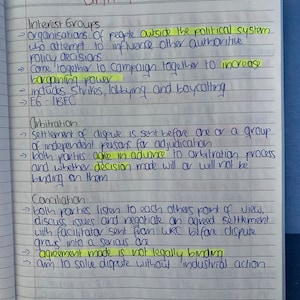 Interest Groups
→ organisations of people outside the political system
who attempt to influence other authoritive
policy decisions
→ Come together to campaign together to increase
bargaining power
→ includes strikes, lobbying and boycotting
→ EG - IBEC
Arbitration
→ Settlement of dispute is sent before one or a group
of independent persons for adjudication
→ both parties agree in advance to arbitration process
and whether decision made will or will not be
binding on them
Conciliation
→ both parties listen to each others point of view,
discuss issues and negotiate an agreed settlement
with facilitator sent from WRC before dispute
grows into a serious one
→ agreement made is not legally binding
→ aim to solve dispute without industrial action